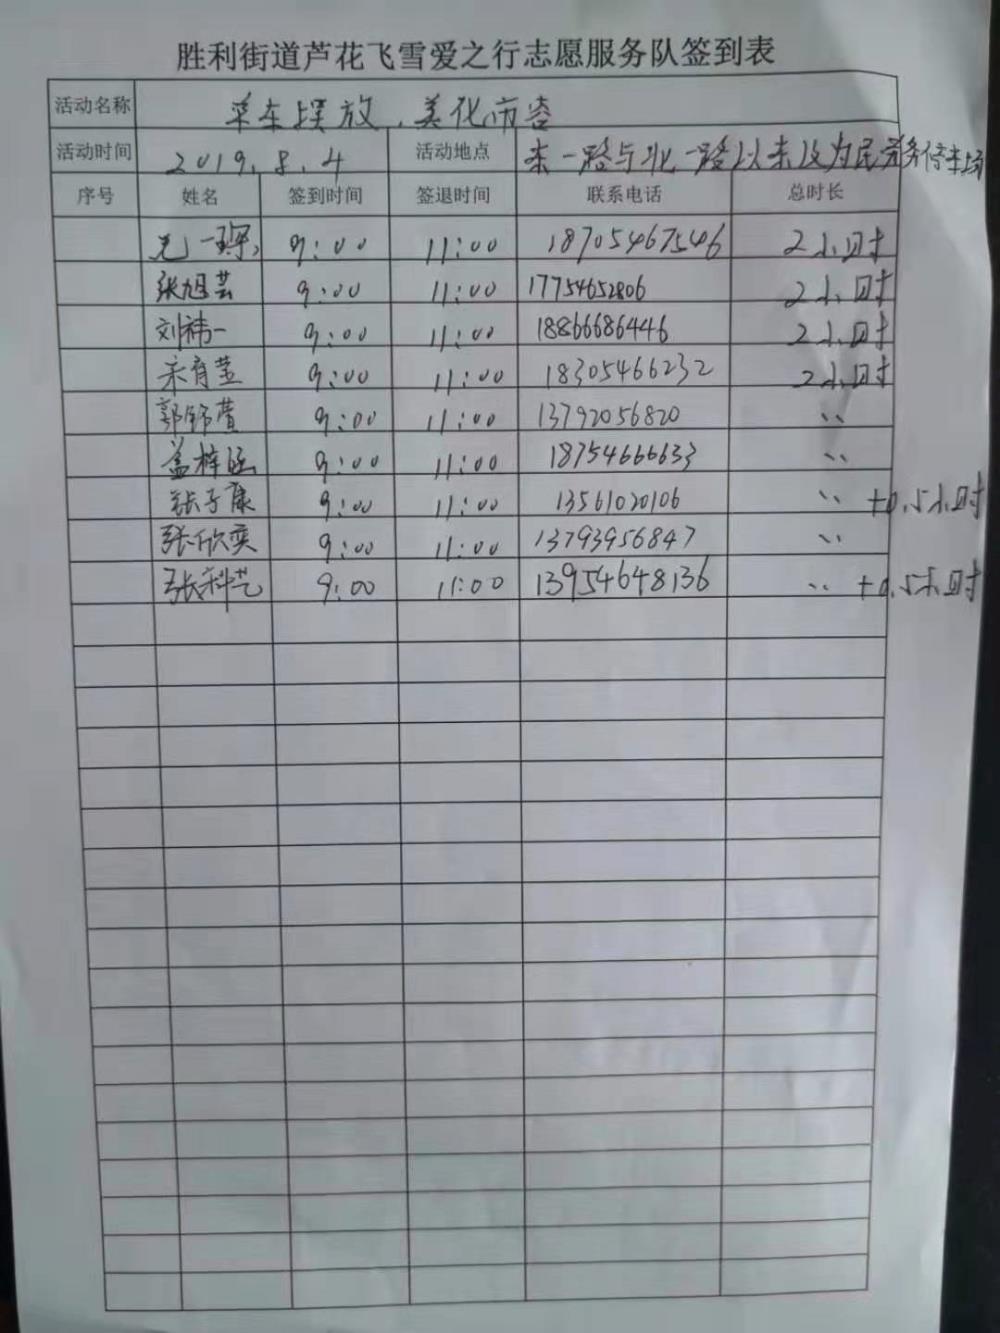 胜利街道芦花飞雪爱之行志愿服务队签到表
活动名称 单车摆放、美化市容
活动时间 2019.8.4 活动地点 东一路与北一路以东及为民服务停车场
序号 姓名 签到时间 签退时间 联系电话 总时长
一琛 9:00 11:00 18705467546 2小时
张旭芸 9:00 11:00 17754652806 2小时
刘祎一 9:00 11:00 18866686446 2小时
宋育莹 9:00 11:00 18305466232 2小时
郭铈萱 9:00 11:00 13792056820 〃
盖梓涵 9:00 11:00 18754666633 〃
张子康 9:00 11:00 13561020106 〃 +0.5小时
张欣奕 9:00 11:00 13793956847 〃
张科艺 9:00 11:00 13954648136 〃 +0.5小时